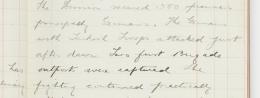 The Division received 1500 prisoners
principally Germans. The Germans
with Turkish Troops attacked first
after dawn Two first Brigade
outposts were captured the
fighting continued practically